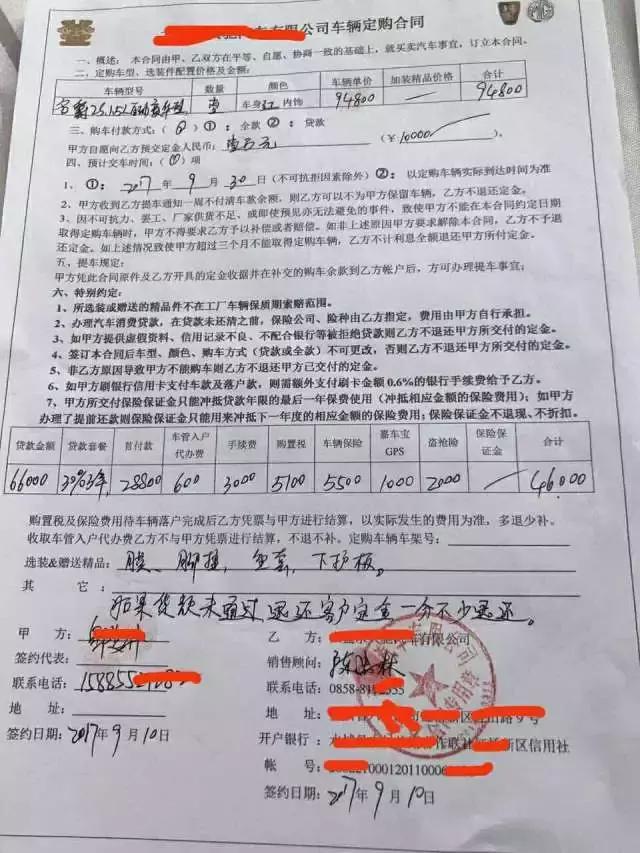 有限公司车辆定购合同
一、概述：本合同由甲、乙双方在平等、自愿、协商一致的基础上，就买卖汽车事宜，订立本合同。
二、定购车型、选装件配置价格及金额：
车辆型号 数量 颜色 车辆单价 加装精品价格 合计
名爵ZS 1.5L 自动 车型 壹 车身红 内饰 94800 — 94800
三、购车付款方式：（②）①：全款 ②：贷款
甲方自愿向乙方预交定金人民币：壹万元（￥10000）
四、预计交车时间：（①）项
1、①：2017年9月30日（不可抗拒因素除外）②：以定购车辆实际到达时间为准
2、甲方收到乙方提车通知一周不付清车款余额，则乙方可以不为甲方保留车辆，乙方不退还定金。
3、因不可抗力、罢工、厂家供货不足、或即使预见亦无法避免的事件，致使甲方不能在本合同约定日期
取得定购车辆时，甲方不得要求乙方予以补偿或者赔偿。如非上述原因甲方要求解除本合同，乙方不予退
还定金。如上述情况致使甲方超过三个月不能取得定购车辆，乙方不计利息全额退还甲方所付定金。
五、提车规定：
甲方凭此合同原件及乙方开具的定金收据并在补交的购车余款到乙方帐户后，方可办理提车事宜；
六、特别约定：
1、所选装或赠送的精品件不在工厂车辆保质期索赔范围。
2、办理汽车消费贷款，在贷款未还清之前，保险公司、险种由乙方指定，费用由甲方自行承担。
3、如甲方提供虚假资料、信用记录不良、不配合银行等被拒绝贷款则乙方不退还甲方所交付的定金。
4、签订本合同后车型、颜色、购车方式（贷款或全款）不可更改，否则乙方不退还甲方定金。
5、非乙方原因导致甲方不能购车则乙方不退还甲方已交付的定金。
6、如甲方刷银行信用卡支付车款及落户款，则需额外支付刷卡金额0.6%的银行手续费给予乙方。
7、甲方所交付保险保证金只能冲抵贷款年限的最后一年保费使用（冲抵相应金额的保险费用）；如甲方
办理了提前还款则保险保证金只能用来冲抵下一年度的相应金额的保险费用；保险保证金不退现、不折扣。
贷款金额 贷款套餐 首付款 车管入户代办费 手续费 购置税 车辆保险 嘉车宝GPS 盗抢险 保险保证金 合计
66000 30%3年 28800 600 3000 5100 5500 1000 2000 — 46000
购置税及保险费用待车辆落户完成后乙方凭票与甲方进行结算，以实际发生的费用为准，多退少补。
收取车管入户代办费乙方不与甲方凭票进行结算，不退不补。定购车辆车架号：
选装&赠送精品：膜、脚垫，坐套，下护板。
其 它：
如果贷款未通过退还客户定金一分不少退还。
甲 方：
乙 汽车有限公司
签约代表：
销售顾问：
联系电话：
联系电话：0858-8
地 址：
地 址： 新区 路9号
签约日期：2017年9月10日
开户银行： 作联社 新区信用社
帐 号： 0001201100
签约日期：2017年9月10日